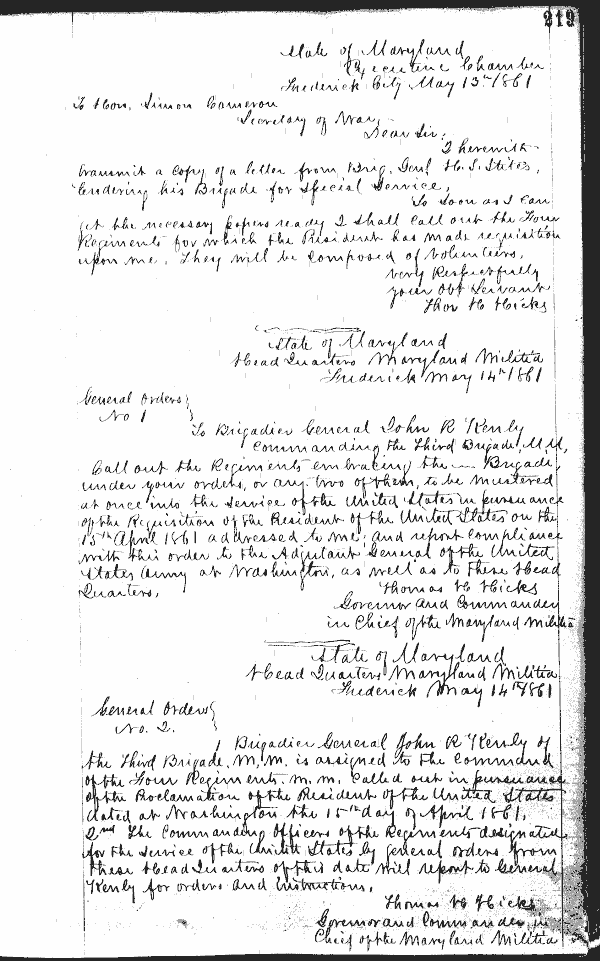 219
State of Maryland
Executive Chamber
Frederick City May 13th 1861
To Hon. Simon Cameron
Secretary of War,
Dear Sir,
I herewith
transmit a copy of a letter from Brig. Genl H. S. Stites,
tendering his Brigade for Special Service,
So soon as I can
get the necessary papers ready I shall call out the Four
Regiments for which the President has made requisition
upon me. They will be composed of volunteers.
Very Respectfully
your Obt Servant
Thos H Hicks
State of Maryland
Head Quarters Maryland Militia
Frederick May 14th 1861
General Orders
No 1
To Brigadier General John R Kenly
Commanding the Third Brigade, M. M,
Call out the Regiments embracing the — Brigade,
under your orders, or any two of them, to be mustered
at once into the service of the United States in pursuance
of the Requisition of the President of the United States on the
15th April 1861 addressed to me; and report compliance
with this order to the Adjutant General of the United
States Army at Washington, as well as to these Head
Quarters,
Thomas H Hicks
Governor and Commander
in Chief of the Maryland Militia
State of Maryland
Head Quarters Maryland Militia
Frederick May 14th 1861
General Orders
No. 2.
1 Brigadier General John R Kenly of
the Third Brigade, M. M. is assigned to the command
of the Four Regiments. M. M. called out in pursuance
of the Proclamation of the President of the United States
dated at Washington the 15th day of April 1861.
2nd The Commanding Officers of the Regiments designated
for the service of the United States by general orders from
these Head Quarters of this date will report to General
Kenly for orders and instructions,
Thomas H Hicks
Governor and Commander in
Chief of the Maryland Militia